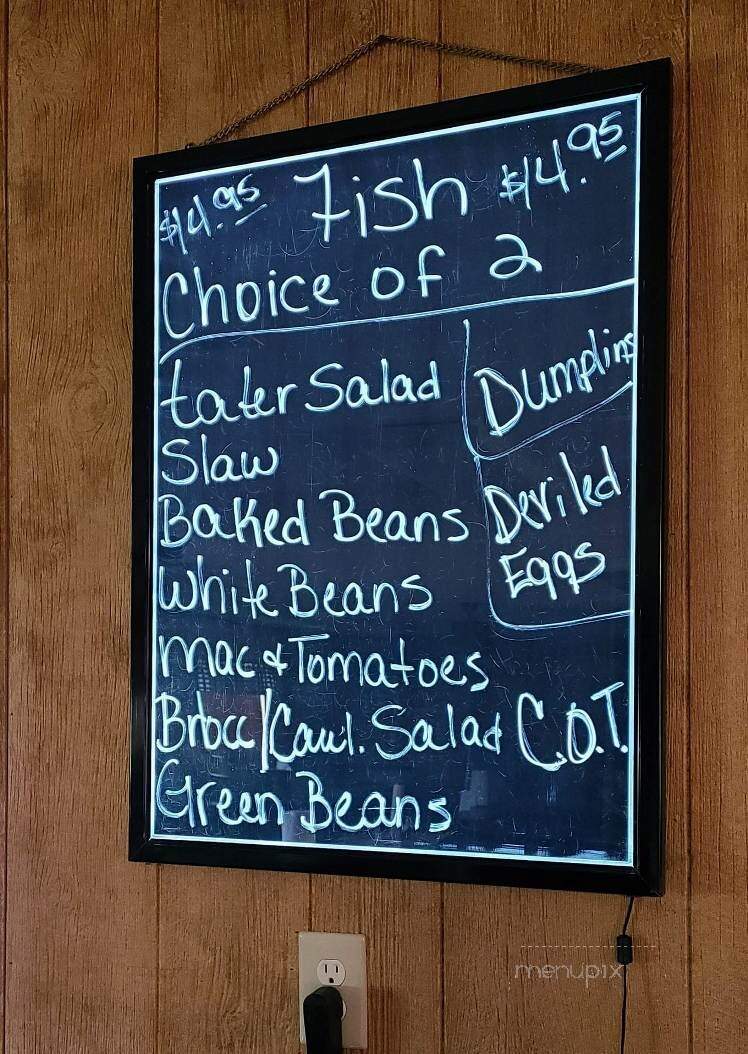 $14.95 Fish $14.95
Choice of 2
tater Salad
Slaw
Baked Beans
White Beans
Mac & Tomatoes
Brocc/Caul. Salad
Green Beans
Dumplins
Deviled
Eggs
C.O.T.
menupix